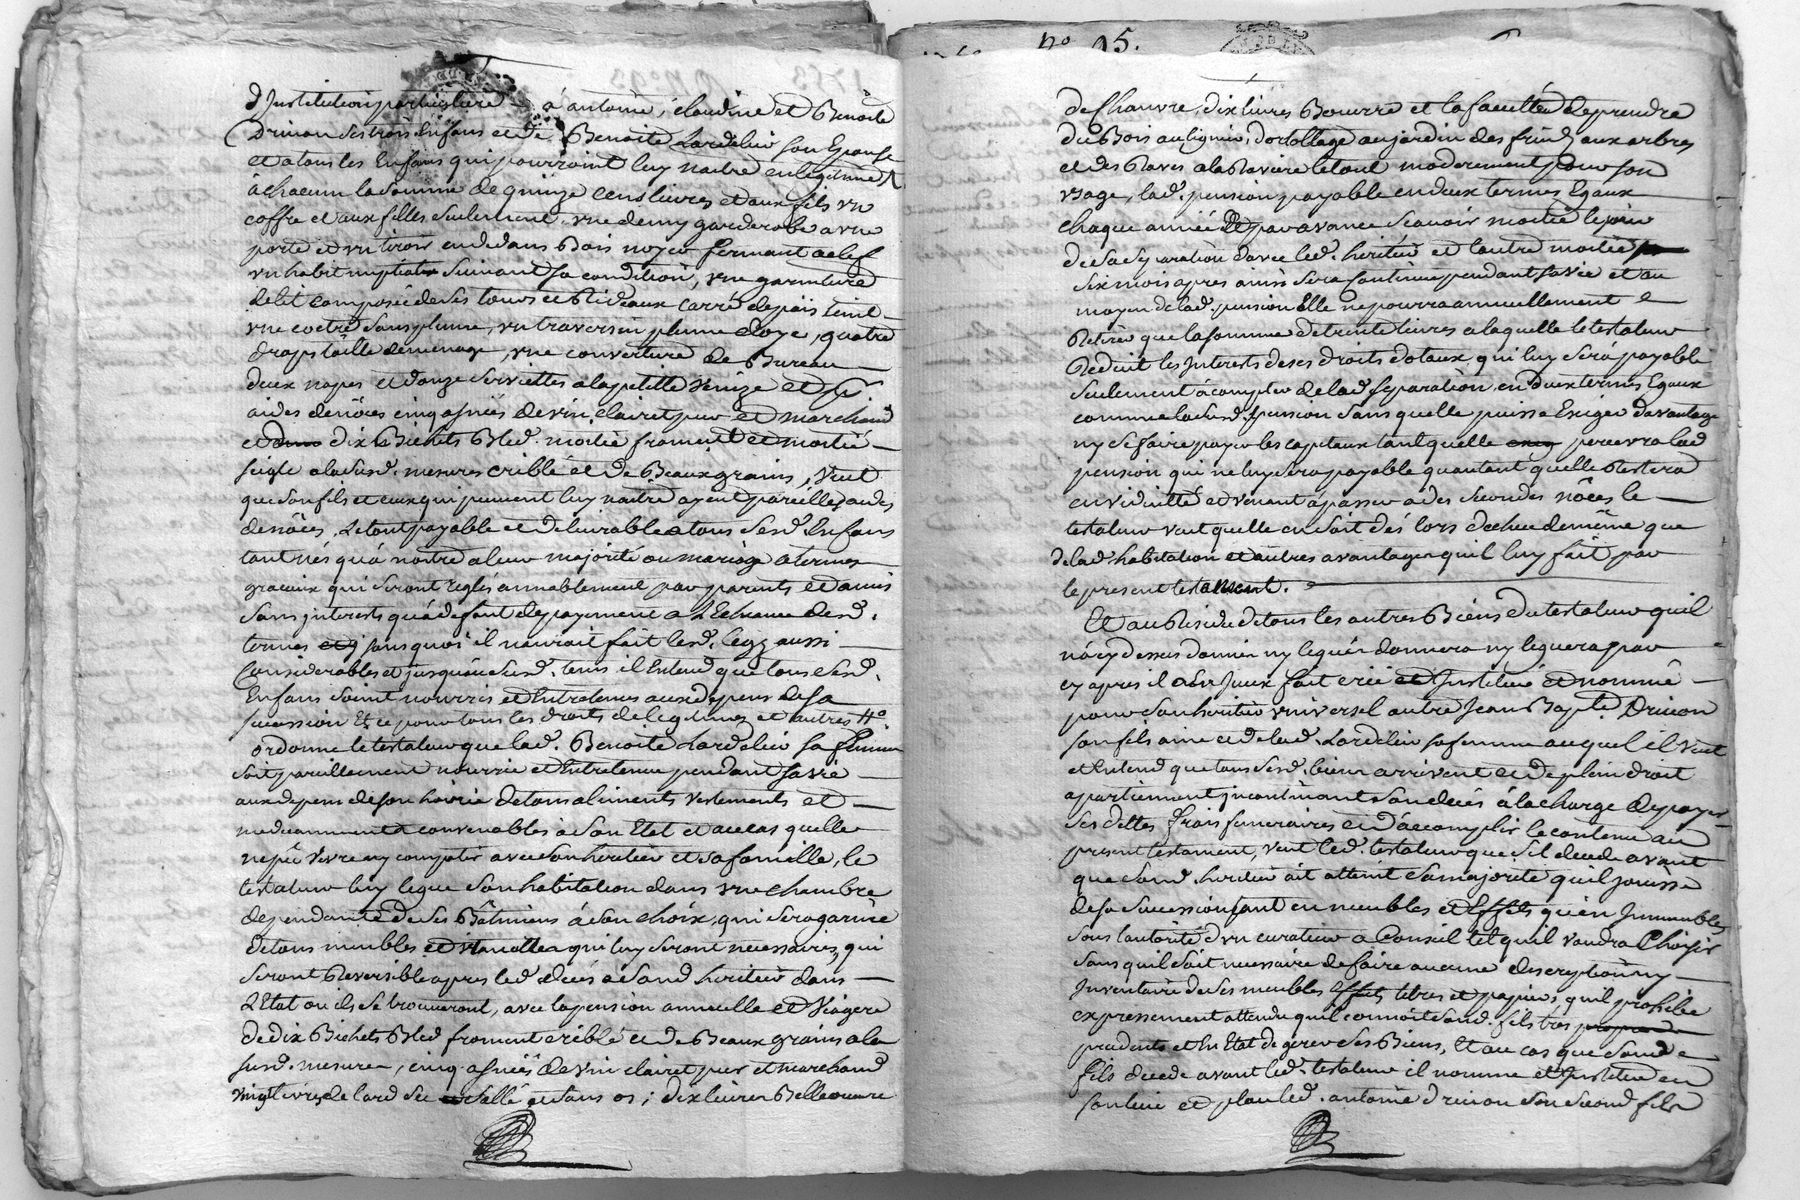 d'Institution particuliere a antoine, claudine et Benoite
Drivon ses trois Enfans et de Benoite Lardellier son Epouse
et a tous les Enfans qui pourroient luy naitre en legitime
à chacun la somme de quinze cens livres et aux fils un
coffre et aux filles seulement une demy garderobe a une
porte et un tiroir en dedans Bois noyer fermant a clef
un habit nuptial suivant sa condition, une garniture
de lit composée de ses tours et Rideaux carré de pais teint
une coetre sans plume, un traversin plume d'oye, quatre
draps taille de menage, une couverture de Bureau
deux napes et douze serviettes a la petite Venize et
aides de nôces cinq asnées de vin clairet pur et marchand
et dix Bichets Bled moitié froment et moitié
seigle a la susd. mesure criblé et de Beaux grains, Veut
que son fils et ceux qui peuvent luy naitre ayent pareilles aides
de nôces, Le tout payable et delivrable a tous sesd. Enfans
tant nés qu'à naitre a leur majorité ou mariage a termes
gracieux qui seront reglés amiablement par parents et amis
sans interests qu'à defaut de payement a L'Echeance desd.
termes sans quoi il n'auroit fait lesd. legs aussi
Considerables et jusqu'au susd. tems il Entend que tous sesd.
Enfans soient nourris et Entretenus aux depens de sa
succession Et ce pour tous les droits de legitimes et autres
ordonne le testateur que lad. Benoite Lardellier sa femme
soit pareillement nourrie et Entretenue pendant sa vie
aux depens de son hoirie de tous aliments vestements et
medicamments convenables à son Etat et au cas quelle
ne peu vivre ny compatir avec son heritier et sa famille, le
testateur luy legue son habitation dans une chambre
dependante de ses Bâtimens à son choix, qui sera garnie
de tous meubles et utancilles qui luy seront necessaires, qui
seront Reversible apres led. décès a sond. heritier dans
L'Etat ou ils se trouveront, avec la pension annuelle et Viagere
de dix Bichets Bled froment criblé et de Beaux grains a la
susd. mesure, cinq asnées de vin clairet pur et marchand
vingt livres de lard sec salé et sans os; dix livres Belle œuvre
n° 95.
de Chanvre, dix livres Beurre et la faculté de prendre
du Bois au lignier, d'ortollage au jardin des fruits aux arbres
et des Raves a la Raviere le tout moderement pour son
usage, lad. pension payable en deux termes Egaux
chaque année et par avance Scavoir moitié le jour
de sa separation d'avec led. heritier et l'autre moitié
six mois apres ainsi sera continué pendant sa vie et au
moyen de lad. pension Elle ne pourra annuellement
Retirer que la somme de trente livres a laquelle le testateur
Reduit les Interests de ses droits dotaux qui luy sera payable
seulement à compter de lad. separation en deux termes Egaux
comme la susd. pension sans quelle puisse Exiger davantage
ny se faire payer les capitaux tant quelle percevra lad
pension qui ne luy sera payable qu'autant quelle Restera
en viduitté et venant à passer a des secondes nôces le
testateur veut quelle en soit dés lors dechue de même que
de lad. habitation et autres avantages qu'il luy fait par
le present testament.
Et au Residu de tous les autres Biens du testateur qu'il
n'a cy dessus donnér ny leguér donnera ny leguera par
cy apres il a de sa voix fait créé et Institué et nommé
pour son heritier universel autre Jean Bapte. Drivon
son fils ainé et de lad. Lardellier sa femme auquel il veut
et Entend que tous sesd. biens arrivent et de plein droit
apartiennent incontinant son décès à la charge de payer
ses dettes frais funeraires et d'accomplir le contenu au
present testament, veut led. testateur que s'il decede avant
que sond. heritier ait atteint sa majorité qu'il jouisse
de sa succession tant en meubles et Effets qu'en Immeubles
sous l'autorité d'un curateur a Conseil tel qu'il voudra Choisir
sans qu'il soit necessaire de faire aucune description ny
Inventaire de ses meubles Effets titres et papiers, qu'il prohibe
expressement attendu qu'il connoit sond. fils tres
prudents et En Etat de gerer ses Biens, Et au cas que sond.
fils decede avant led. testateur il nomme et Institue en
son lieu et place led. antoine Drivon son second fils